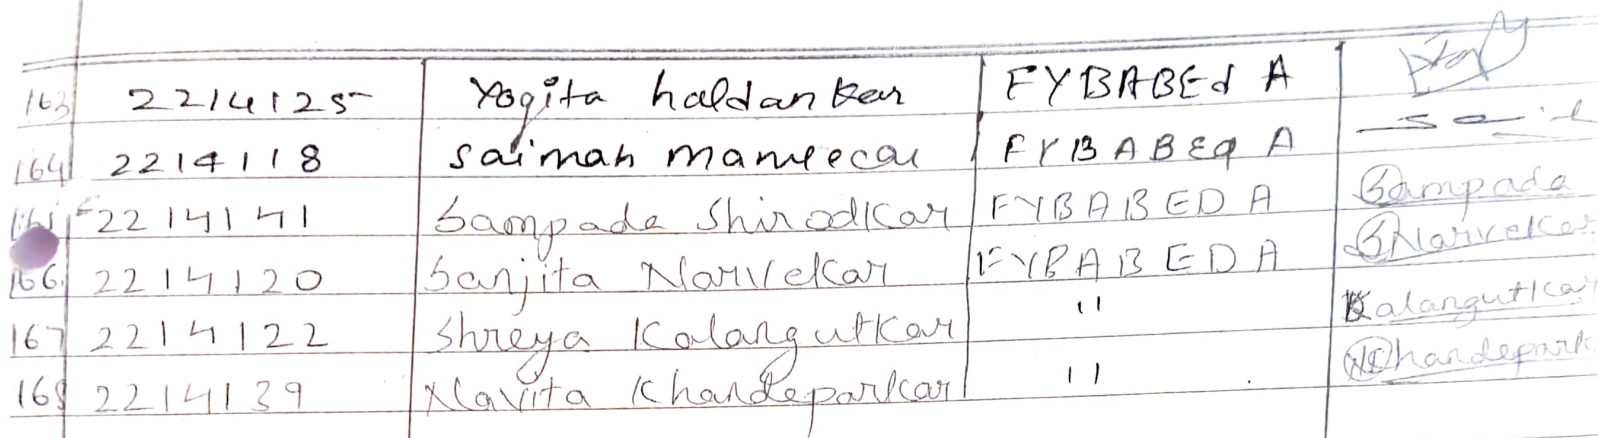 163 2214125 Yogita haldankar FYBABEd A
164 2214118 Saimah FYBABEd A
165 2214141 Sampada Shirodkar FYBABED A Sampada
166 2214120 Sanjita Narvekar FYBABED A SNarvekar
167 2214122 Shreya Kalangutkar " Kalangutkar
168 2214139 Navita Khandeparkar " NKhandepark